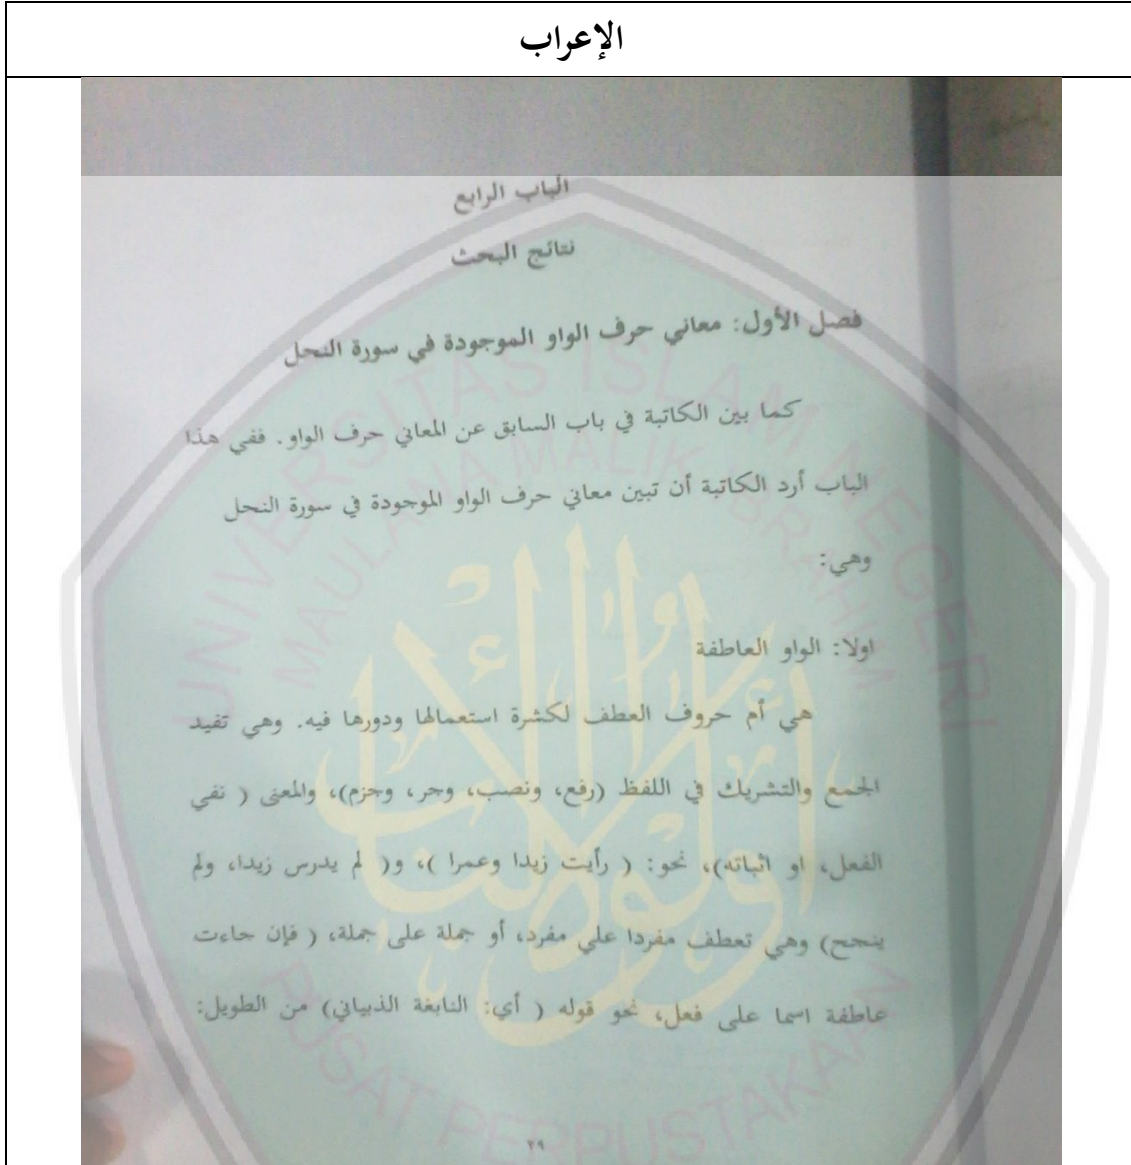 الإعراب
الباب الرابع
نتائج البحث
فصل الأول: معاني حرف الواو الموجودة في سورة النحل
كما بين الكاتبة في باب السابق عن المعاني حرف الواو. ففي هذا
الباب أرد الكاتبة أن تبين معاني حرف الواو الموجودة في سورة النحل
وهي:
اولا: الواو العاطفة
هي أم حروف العطف لكشرة استعمالها ودورها فيه. وهي تفيد
الجمع والتشريك في اللفظ (رفع، ونصب، وجر، وجزم)، والمعنى ( نفي
الفعل، او اثباته)، نحو: ( رأيت زيدا وعمرا )، و( لم يدرس زيدا، ولم
ينجح) وهي تعطف مفردا علي مفرد، أو جملة على جملة، ( فإن جاءت
عاطفة اسما على فعل، نحو قوله ( أي: النابغة الذبياني) من الطويل:
٢٩
UNIVERSITAS ISLAM NEGERI
MAULANA MALIK IBRAHIM
PUSAT PERPUSTAKAAN